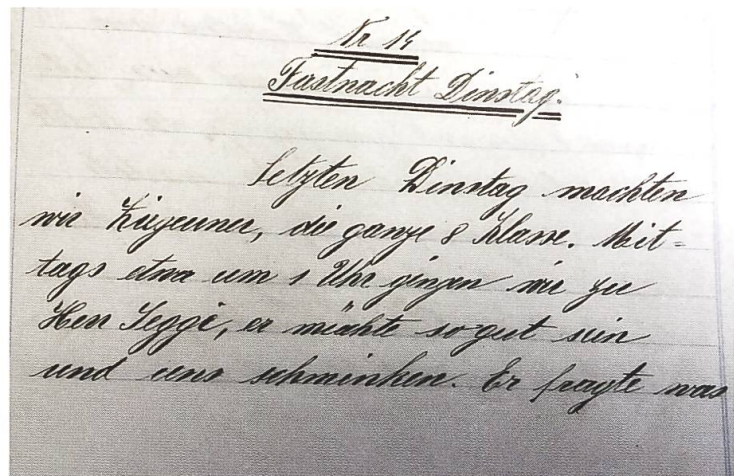 Nr 14
Fastnacht Dinstag.
Letzten Dinstag machten
wir Zigeuner, die ganze 8 Klasse. Mit-
tags etwa um 1 Uhr gingen wir zu
Herr Seggi, er möchte so gut sein
und uns schminken. Er fragte was